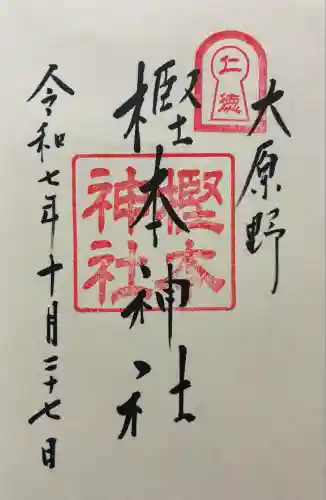 大原野
仁徳
樫本神社
樫本
神社
令和七年十月二十七日